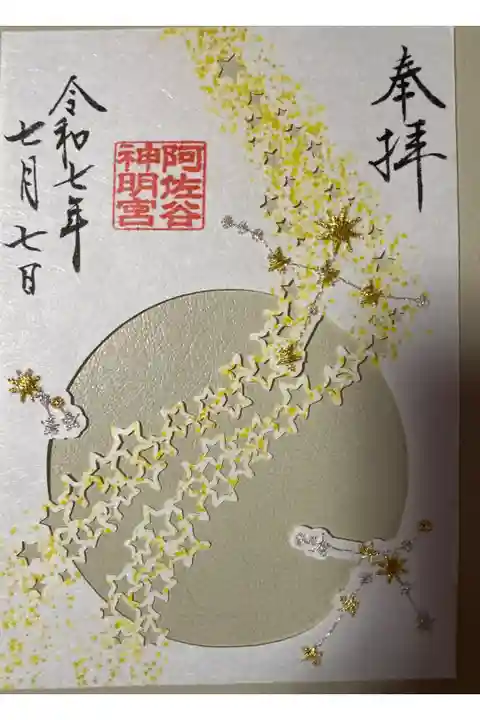 奉拝
阿佐谷
神明宮
令和七年
七月七日